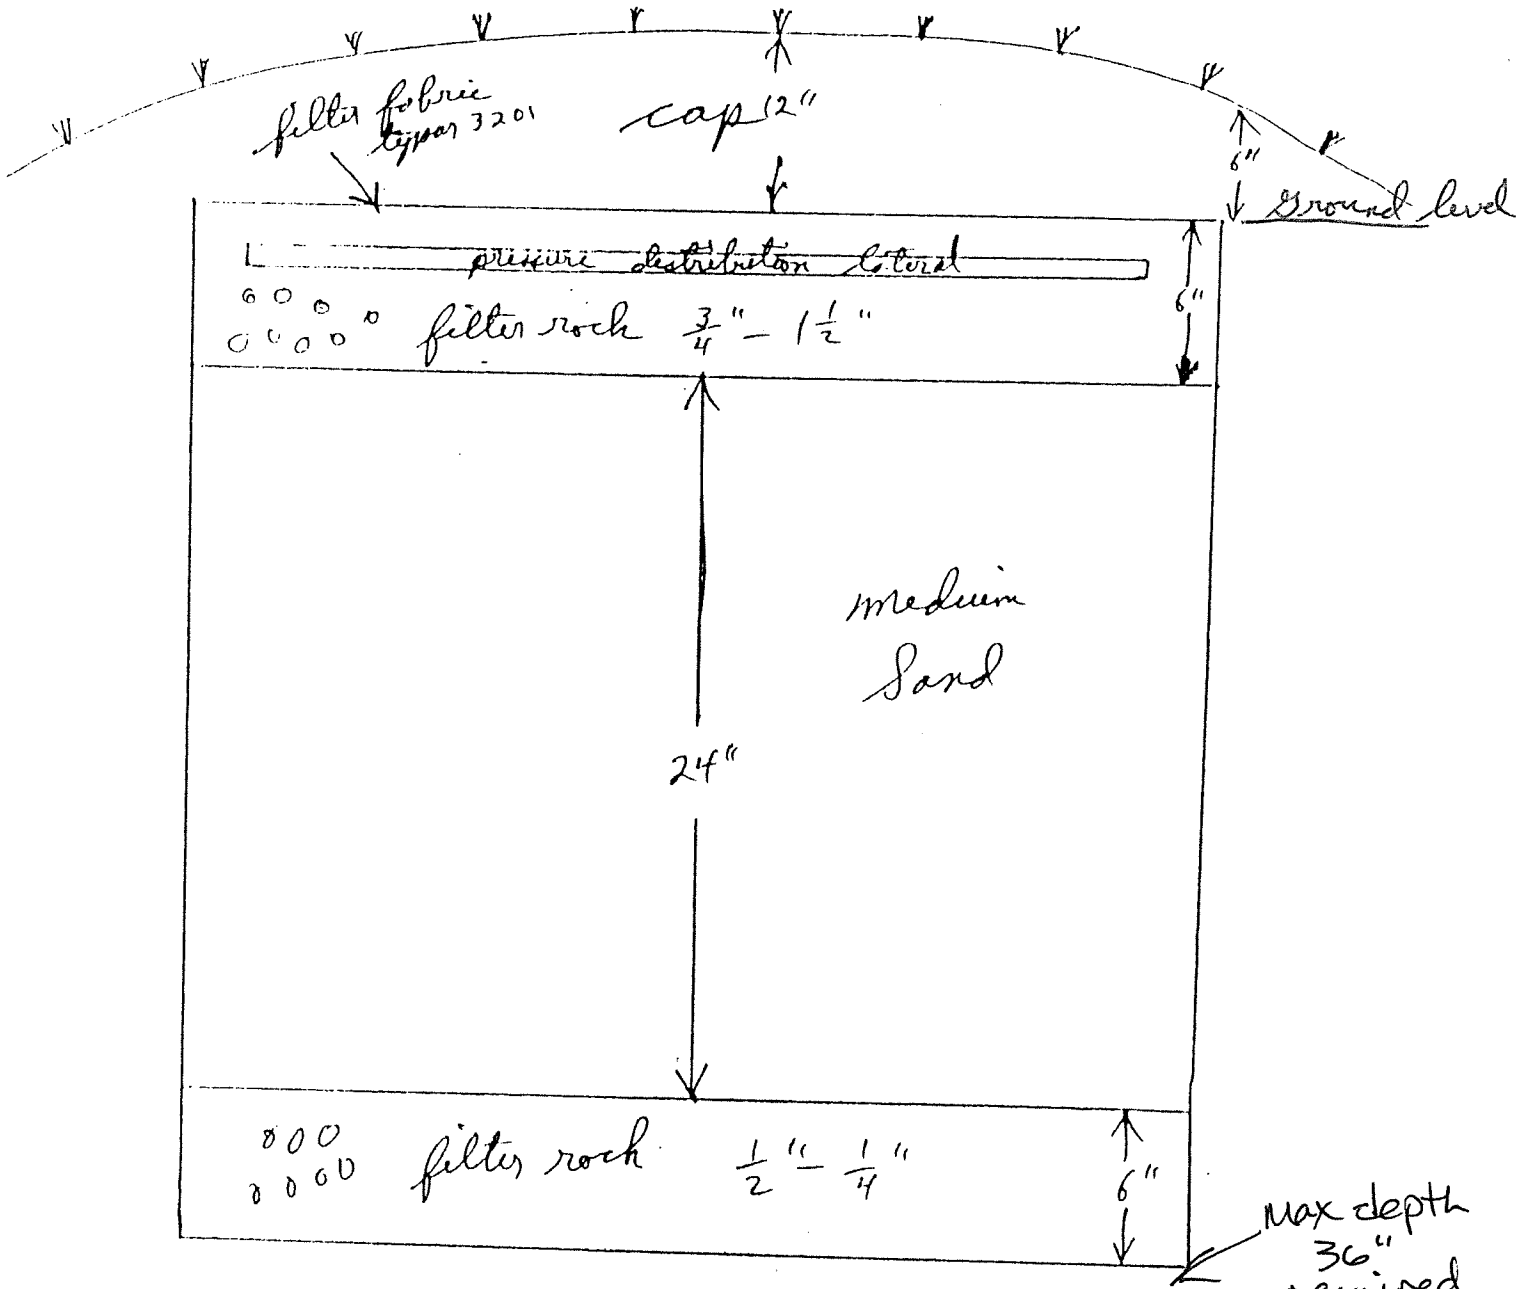 filter fabric
typar 3201
cap 12"
6"
Ground level
pressure distribution lateral
6"
filter rock 3/4" - 1 1/2"
medium
Sand
24"
filter rock 1/2" - 1/4"
6"
Max depth
36"